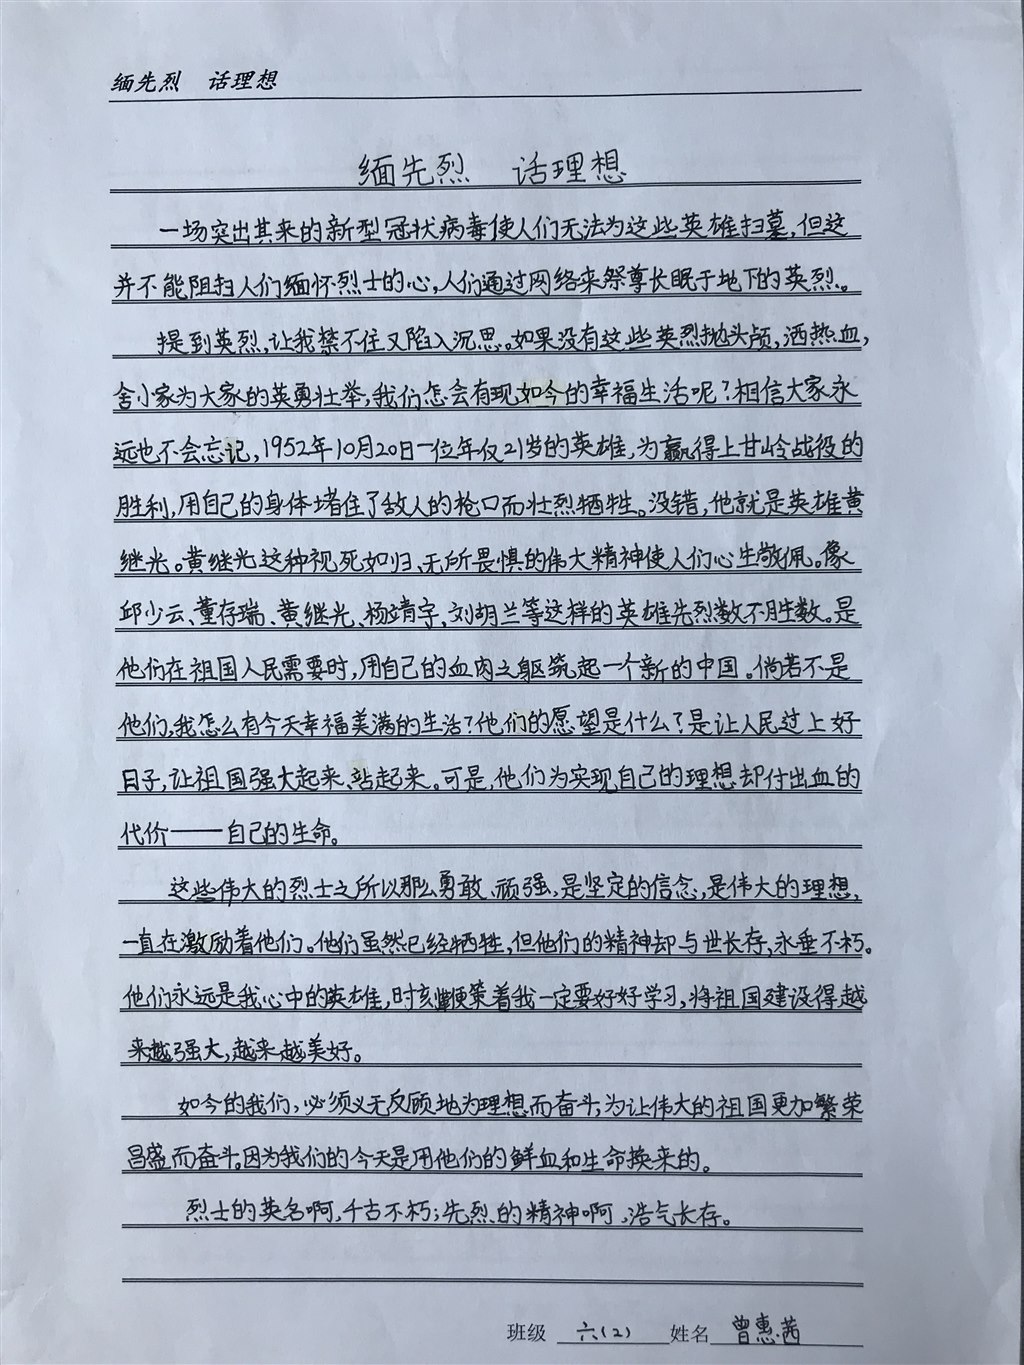 缅先烈　话理想
缅先烈　话理想
一场突出其来的新型冠状病毒使人们无法为这些英雄扫墓,但这
并不能阻挡人们缅怀烈士的心,人们通过网络来祭尊长眠于地下的英烈。
提到英烈,让我禁不住又陷入沉思。如果没有这些英烈抛头颅,洒热血,
舍小家为大家的英勇壮举,我们怎会有现如今的幸福生活呢?相信大家永
远也不会忘记,1952年10月20日一位年仅21岁的英雄,为赢得上甘岭战役的
胜利,用自己的身体堵住了敌人的枪口而壮烈牺牲。没错,他就是英雄黄
继光。黄继光这种视死如归、无所畏惧的伟大精神使人们心生敬佩。像
邱少云、董存瑞、黄继光、杨靖宇、刘胡兰等这样的英雄先烈数不胜数。是
他们在祖国人民需要时,用自己的血肉之躯筑起一个新的中国。倘若不是
他们,我怎么有今天幸福美满的生活?他们的愿望是什么?是让人民过上好
日子,让祖国强大起来、站起来。可是,他们为实现自己的理想却付出血的
代价——自己的生命。
这些伟大的烈士之所以那么勇敢、顽强,是坚定的信念,是伟大的理想,
一直在激励着他们。他们虽然已经牺牲,但他们的精神却与世长存,永垂不朽。
他们永远是我心中的英雄,时刻鞭策着我一定要好好学习,将祖国建设得越
来越强大,越来越美好。
如今的我们,必须义无反顾地为理想而奋斗;为让伟大的祖国更加繁荣
昌盛而奋斗。因为我们的今天是用他们的鲜血和生命换来的。
烈士的英名啊,千古不朽;先烈的精神啊,浩气长存。
班级 六(2) 姓名 曾惠茜